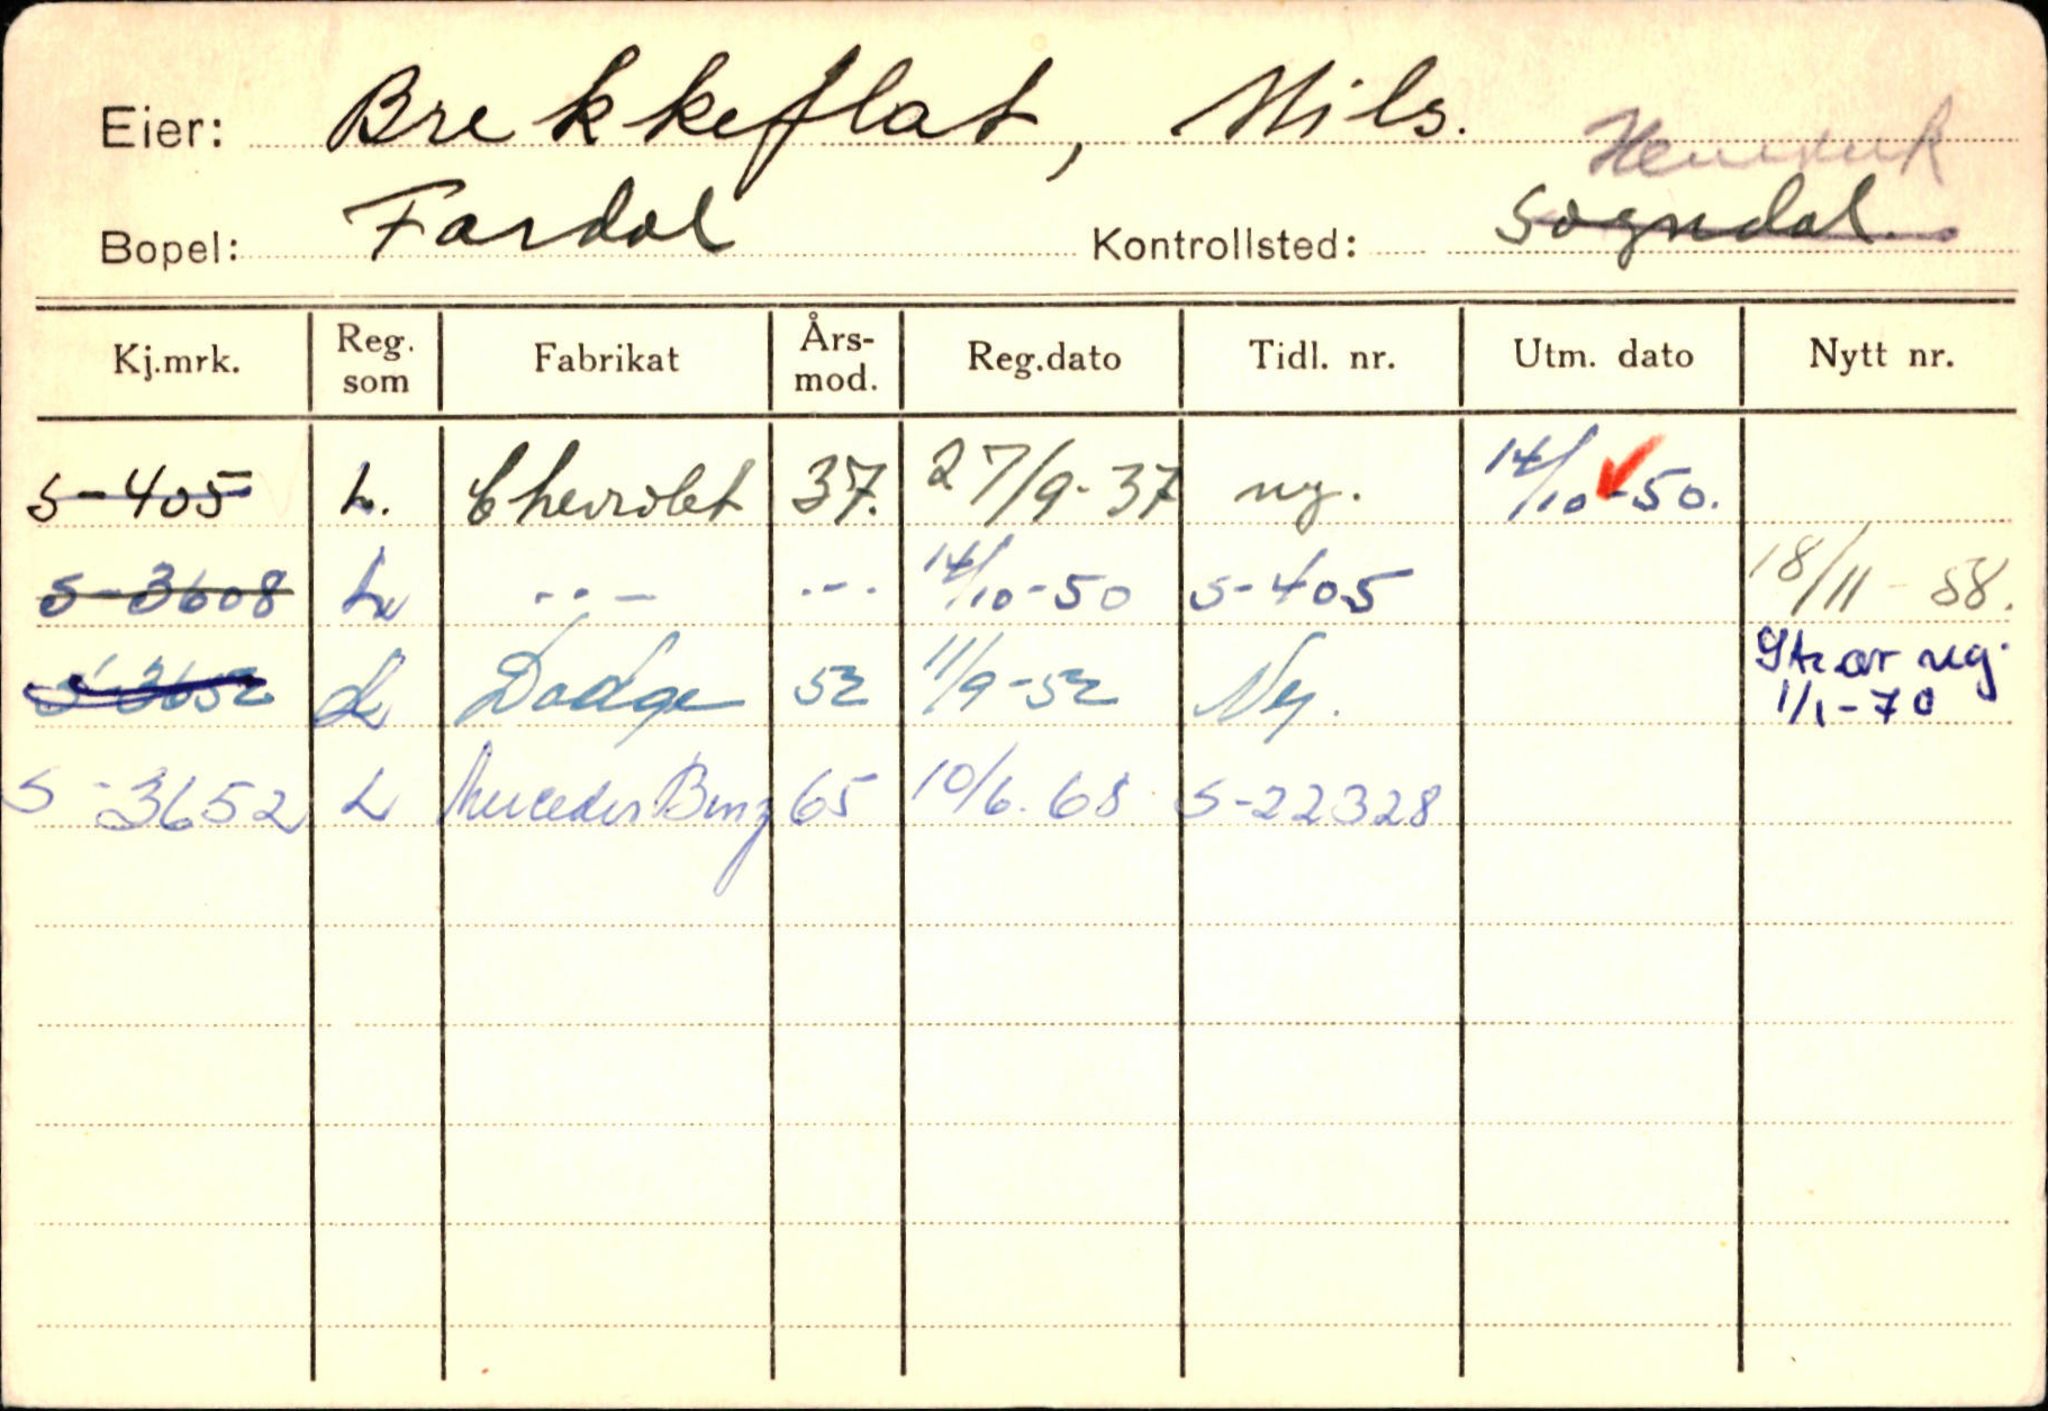 Eier: Brekkeflat, Nils.
Bopel: Fardal Kontrollsted: Sogndal.
Kj.mrk. Reg. som Fabrikat Års-mod. Reg.dato Tidl. nr. Utm. dato Nytt nr.
S-405 L. Chevrolet 37. 27/9-37 ny. 14/10-50.
S-3608 L --- --- 14/10-50 S-405 18/11-58.
S-3652 L Dodge 52 11/9-52 Ny. reg. 1/1-70
S-3652 L Mercedes Benz 65 10/6.68 S-22328